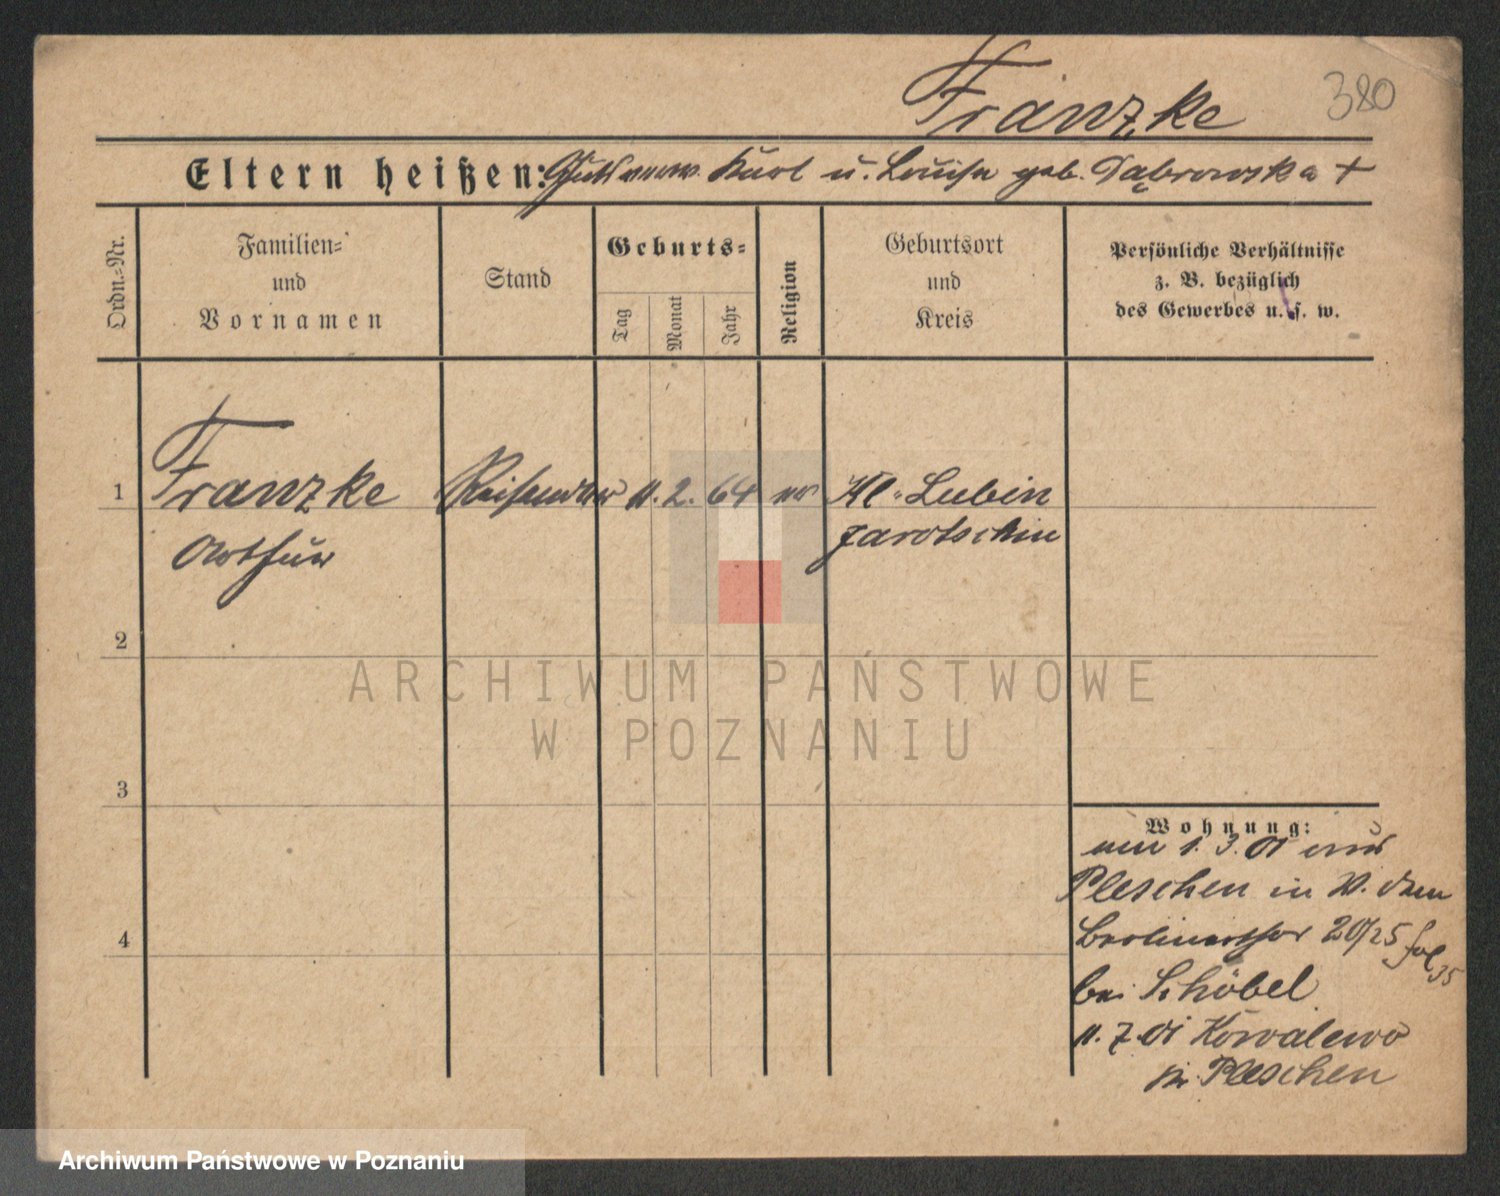 Franzke
380
Eltern heißen: Gutsverw. Kurt u. Louise geb. Dąbrowska +
Ordn.-Nr.
Familien-
und
Vornamen
Stand
Geburts-
Tag
Monat
Jahr
Religion
Geburtsort
und
Kreis
Persönliche Verhältnisse
z. B. bezüglich
des Gewerbes u. s. w.
1 Franzke Reisender 11. 2. 64 Kl. Lubin
Arthur Jarotschin
2
3
4
Wohnung:
1. 3. 01
Pleschen in W. dem
Berlinerthor 20/25
bei Schöbel
11. 7. 01 Kowalewo
Pleschen
ARCHIWUM PAŃSTWOWE
W POZNANIU
Archiwum Państwowe w Poznaniu